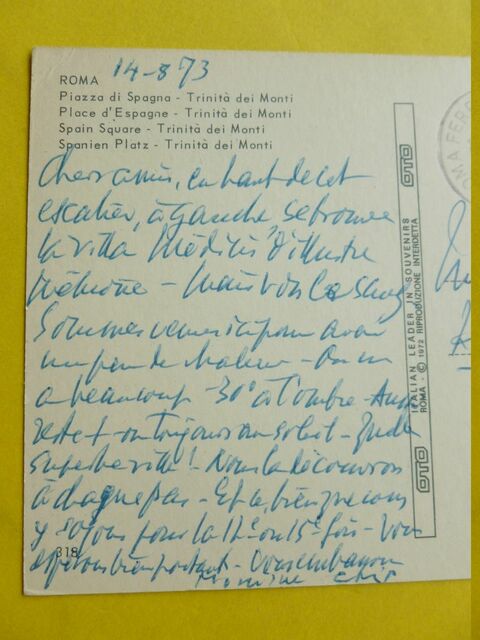 14-8 73
ROMA
Piazza di Spagna - Trinità dei Monti
Place d'Espagne - Trinità dei Monti
Spain Square - Trinità dei Monti
Spanien Platz - Trinità dei Monti
Chers amis, en haut de cet
escalier, à gauche, se trouve
la villa Médicis, d'illustre
mémoire - Mais vous le savez
Sommes venus ici pour avoir
un peu de chaleur - On en
a beaucoup - 30° à l'ombre -
reste-t-on toujours au soleil -
superbe ville! Nous la découvrons
à chaque pas - Et a bien que nous
y soyons pour la 12e ou 15e fois - Vous
espérons bien portant - Vous embrassons
318
OTO
ITALIAN LEADER IN SOUVENIRS
ROMA - © 1972 RIPRODUZIONE INTERDETTA
OTO
OMA FERR